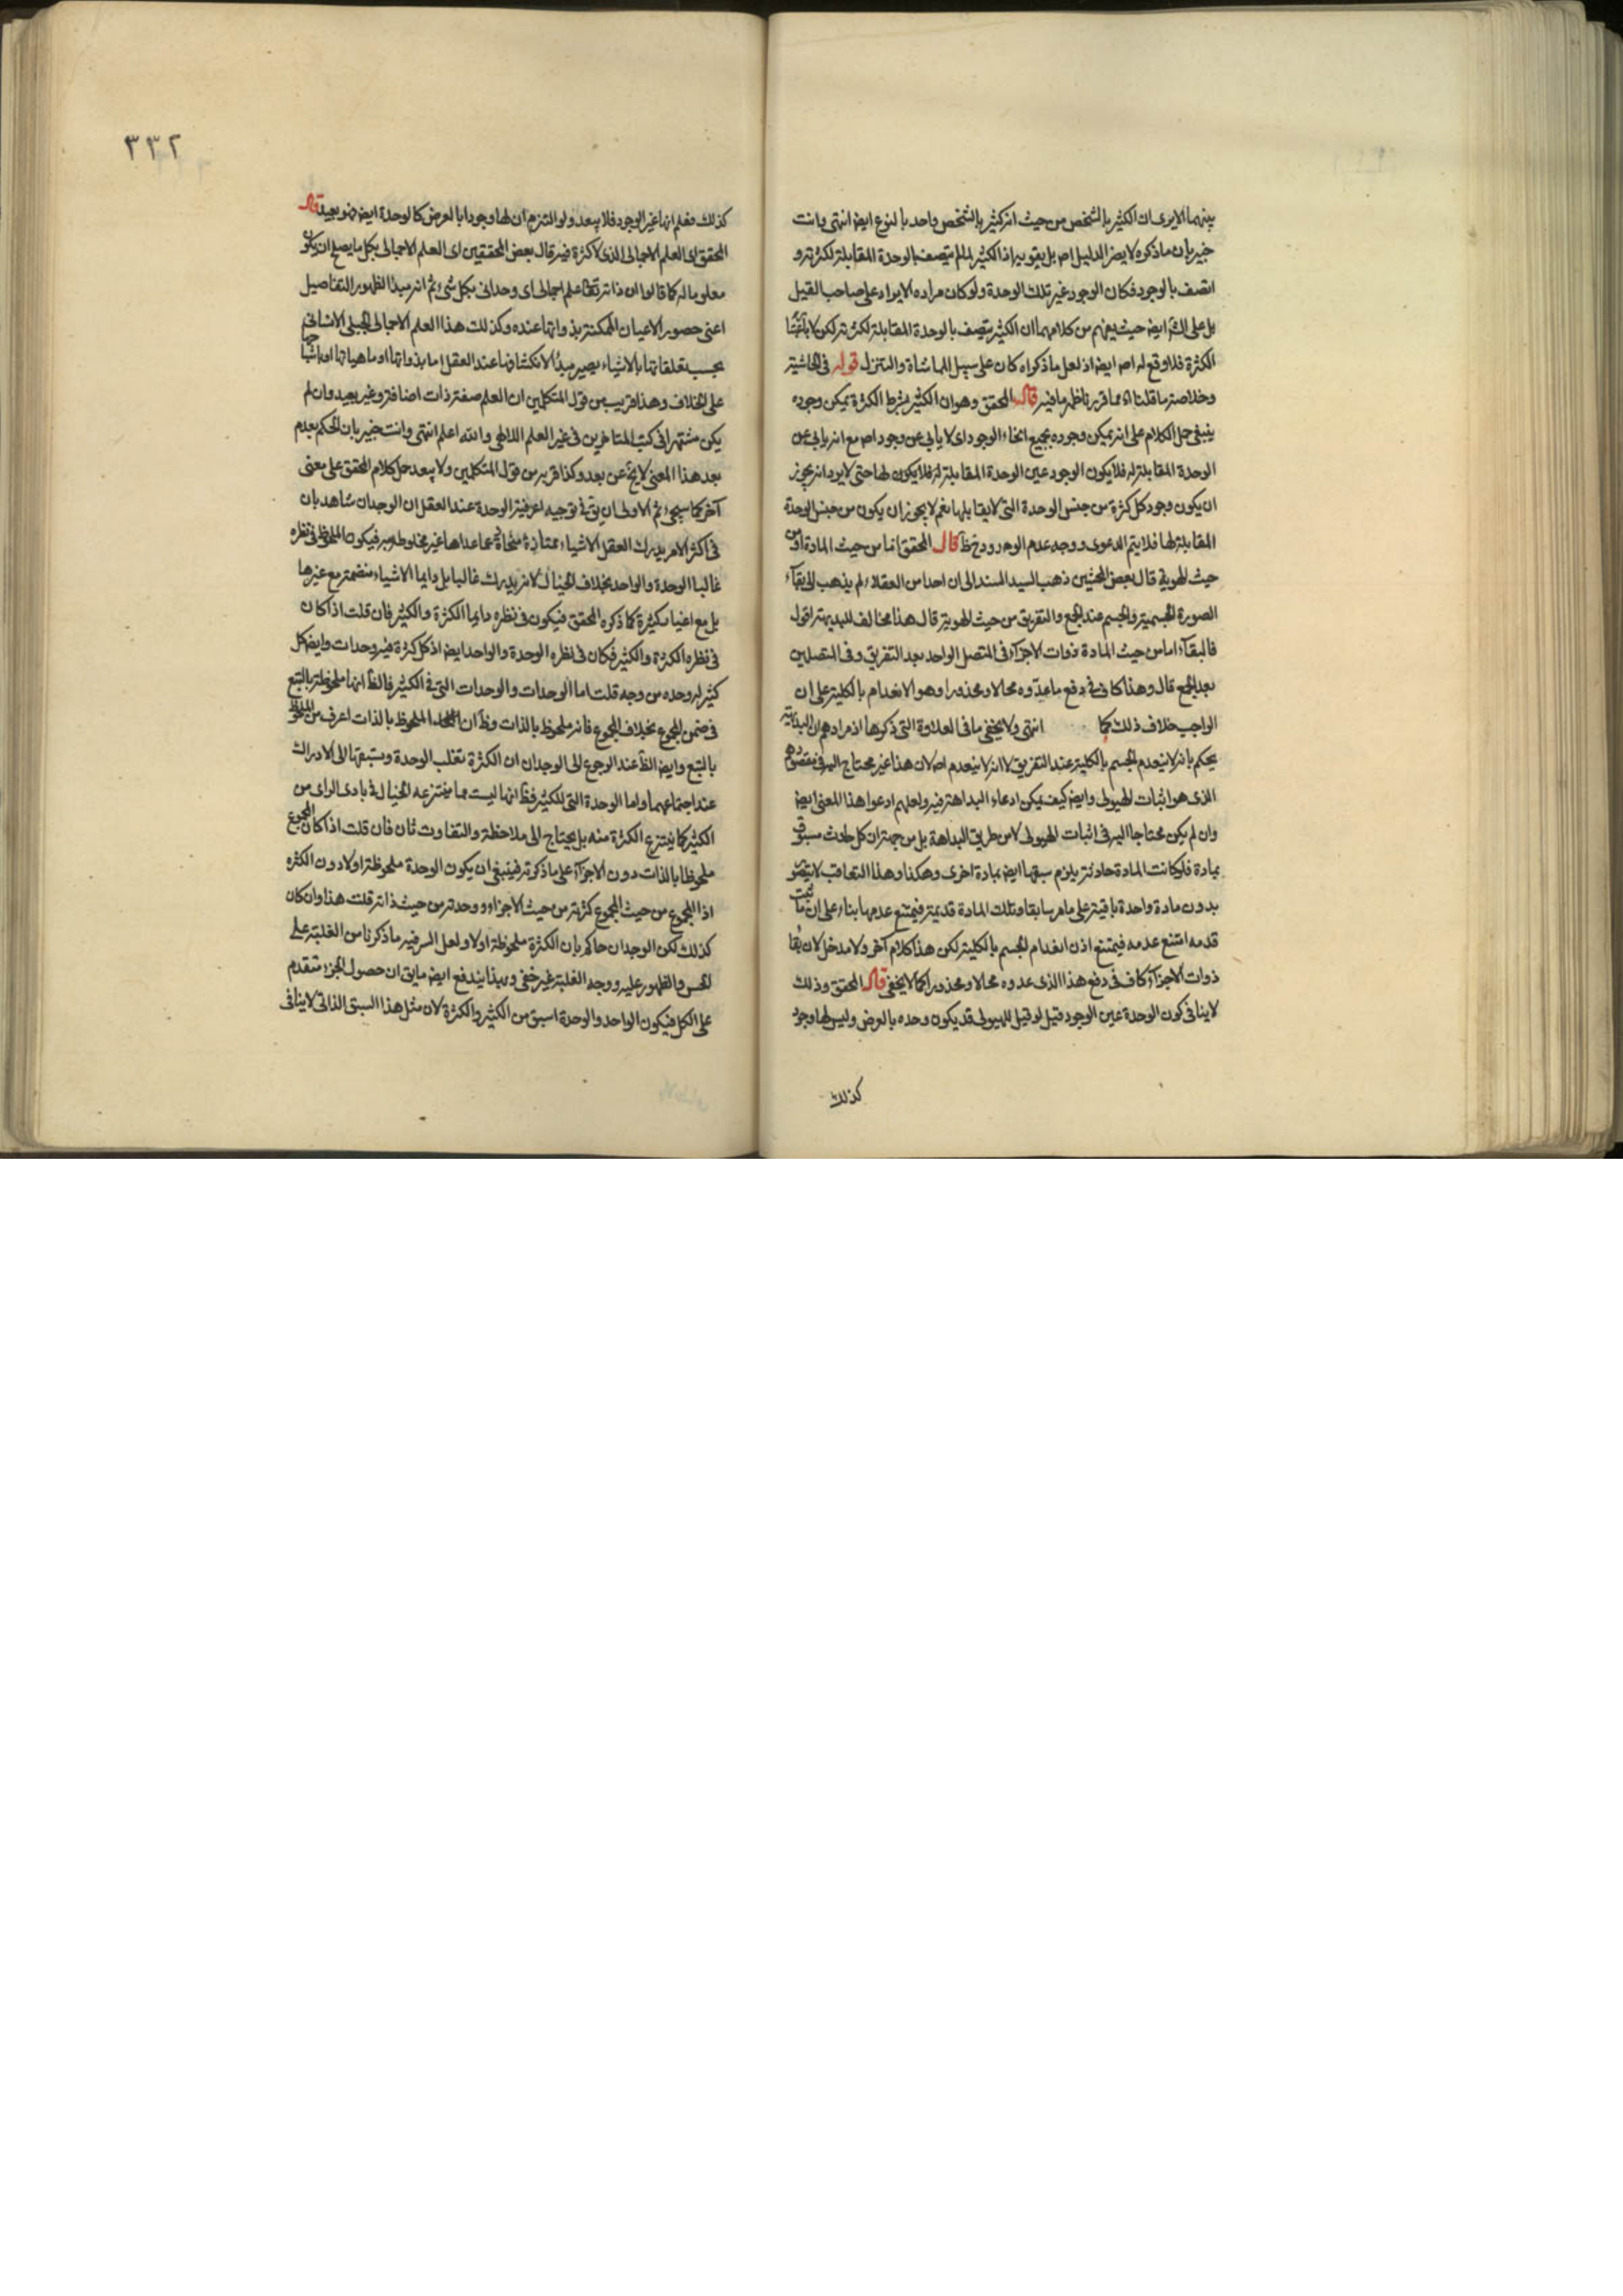 بينهما الا يرى ان الكثير بالشخص من حيث انه كثير بالشخص واحد بالنوع ايضا انتهى وانت
خبير بان ما ذكره لا يضر الدليل اصلا بل يقويه اذ الكثير لما لم يتصف بالوحدة المقابلة لكثرته و
اتصف بالوجود فكان الوجود غير تلك الوحدة ولو كان مراده الايراد على صاحب القيل
بل على ايضا حيث يفهم من كلامهما ان الكثير يتصف بالوحدة المقابلة لكثرته لكن لا باعتبار
الكثرة فلا وقع له اصلا ايضا اذ لعل ما ذكراه كان على سبيل المماشاة والتنزل قوله في الحاشية
وخلاصة ما قلناه مما قررنا ظهر ما فيه قال المحقق وهو ان الكثير بشرط الكثرة يمكن وجوده
ينبغي حمل الكلام على انه يمكن وجوده بجميع انحاء الوجود اى لا يابى عن وجود اصلا مع انه يابى عن
الوحدة المقابلة له فلا يكون الوجود عين الوحدة المقابلة له فلا يكون لها حتى لا يرد انه يجوز
ان يكون وجود كل كثرة من جنس الوحدة التى لا يقابلها نعم لا يجوز ان يكون من جنس الوحدة
المقابلة لها فلا يتم الدعوى ووجه عدم الورود ح ظ قال المحقق انما من حيث المادة او من
حيث الهوية قال بعض المحشين ذهب السيد السند الى ان احدا من العقلاء لم يذهب الى بقاء
الصورة الجسمية والجسم عند الجمع والتفريق من حيث الهوية قال هذا مخالف للبديهة اقول
فالبقاء اما من حيث المادة ذوات الاجزاء فى المتصل الواحد بعد التفريق وفى المتصلين
بعد الجمع قال وهذا كاف فى دفع ما عدّوه محالا ومحذورا وهو الانعدام بالكلية على ان
الواجب خلاف ذلك كما انتهى ولا يخفى ما فى العلاوة التى ذكرها اذ مرادهم ان البداهة
يحكم بانه لا ينعدم الجسم بالكلية عند التفريق لا انه لا ينعدم اصلا لان هذا غير محتاج اليه فى مقصودهم
الذى هو اثبات الهيولى وايضا كيف يمكن ادعاء البداهة فيه ولعلهم ادعوا هذا المعنى ايضا
وان لم يكن محتاجا اليه فى اثبات الهيولى لا من طريق البداهة بل من جهة ان كل حادث مسبوق
بمادة فلو كانت المادة حادثة يلزم سبقها ايضا بمادة اخرى وهكذا وهذا التعاقب لا يتصور
بدون مادة واحدة باقية على ما مر سابقا وتلك المادة قديمة فيمتنع عدمها بناء على ان ما ثبت
قدمه امتنع عدمه فيمتنع اذن انعدام الجسم بالكلية لكن هذا كلام آخر ولا مدخل لان بقا
ذوات الاجزاء كاف فى دفع هذا الذى عدوه محالا ومحذورا كما لا يخفى قال المحقق وذلك
لا ينافى كون الوحدة عين الوجود قيل لو قيل للهيولى قد يكون وحده بالعرض وليس لها وجود
كذلك
٣٣٢
كذلك فعلم انها غير الوجود فلا يبعد ولو التزم ان لها وجودا بالعرض كالوحدة ايضا فهو بعيد قال
المحقق اى العلم الاجمالى الذى لا كثرة فيه قال بعض المحققين اى العلم الاجمالى بكل ما يصلح ان يكون
معلوما له كما قالوا ان ذاته تعالى علم اجمالى اى وحدانى بكل شىء ثم انه مبدأ لظهور التفاصيل
اعنى حضور الاعيان الممكنة بذواتها عنده وكذلك هذا العلم الاجمالى الجبلى الانسانى
بحسب تعلقاتها بالاشياء يصير مبدأ لانكشافها عند العقل اما بذواتها او ماهياتها او اشباحها
على الخلاف وهذا قريب من قول المتكلمين ان العلم صفة ذات اضافة وغير بعيد وان لم
يكن مشتهرا فى كتب المتاخرين فى غير العلم الالهى والله اعلم انتهى وانت خبير بان الحكم بعدم
بعد هذا المعنى لا يخ عن بعد وكذا قربه من قول المتكلمين ولا يبعد حمل كلام المحقق على معنى
آخر كما سيجىء ثم الاولى ان يق فى توجيه اعرفية الوحدة عند العقل ان الوجدان شاهد بان
فى اكثر الامر يدرك العقل الاشياء ممتازة منحازة عما عداها غير مخلوطة به فيكون الملحوظ فى نظره
غالبا الوحدة والواحد بخلاف الخيال لانه يدرك غالبا بل دايما الاشياء منضمة مع غيرها
بل مع اغيار كثيرة كما ذكره المحقق فيكون فى نظره دايما الكثرة والكثير فان قلت اذا كان
فى نظره الكثرة والكثير فكان فى نظره الوحدة والواحد ايضا اذ كل كثرة فيه وحدات وايضا كل
كثير له وحده من وجه قلت اما الوحدات والوحدات التى فى الكثير فالظ انها ملحوظة بالتبع
فى ضمن المجموع بخلاف المجموع فانه ملحوظ بالذات وظ ان الملحوظ بالذات اعرف من الملحوظ
بالتبع وايضا الظ عند الرجوع الى الوجدان ان الكثرة تغلب الوحدة وسبقها الى الادراك
عند اجتماعهما واما الوحدة التى للكثير فظ انها ليست مما ينتزعه الخيال فى بادى الراى من
الكثير كما ينتزع الكثرة منه بل يحتاج الى ملاحظة والتفاوت ثان فان قلت اذا كان المجموع
ملحوظا بالذات دون الاجزاء على ما ذكرته فينبغى ان يكون الوحدة ملحوظة اولا دون الكثره
اذ المجموع من حيث المجموع كثرته من حيث الاجزاء ووحدته من حيث ذاته قلت هذا وان كان
كذلك لكن الوجدان حاكم بان الكثرة ملحوظة اولا ولعل السر فيه ما ذكرنا من الغلبة على
الحس والظهور عليه ووجه الغلبة غير خفى وبهذا يندفع ايضا ما يق ان حصول الجزء متقدم
على الكل فيكون الواحد والوحدة اسبق من الكثير والكثرة لان مثل هذا السبق الذاتى لا ينافى